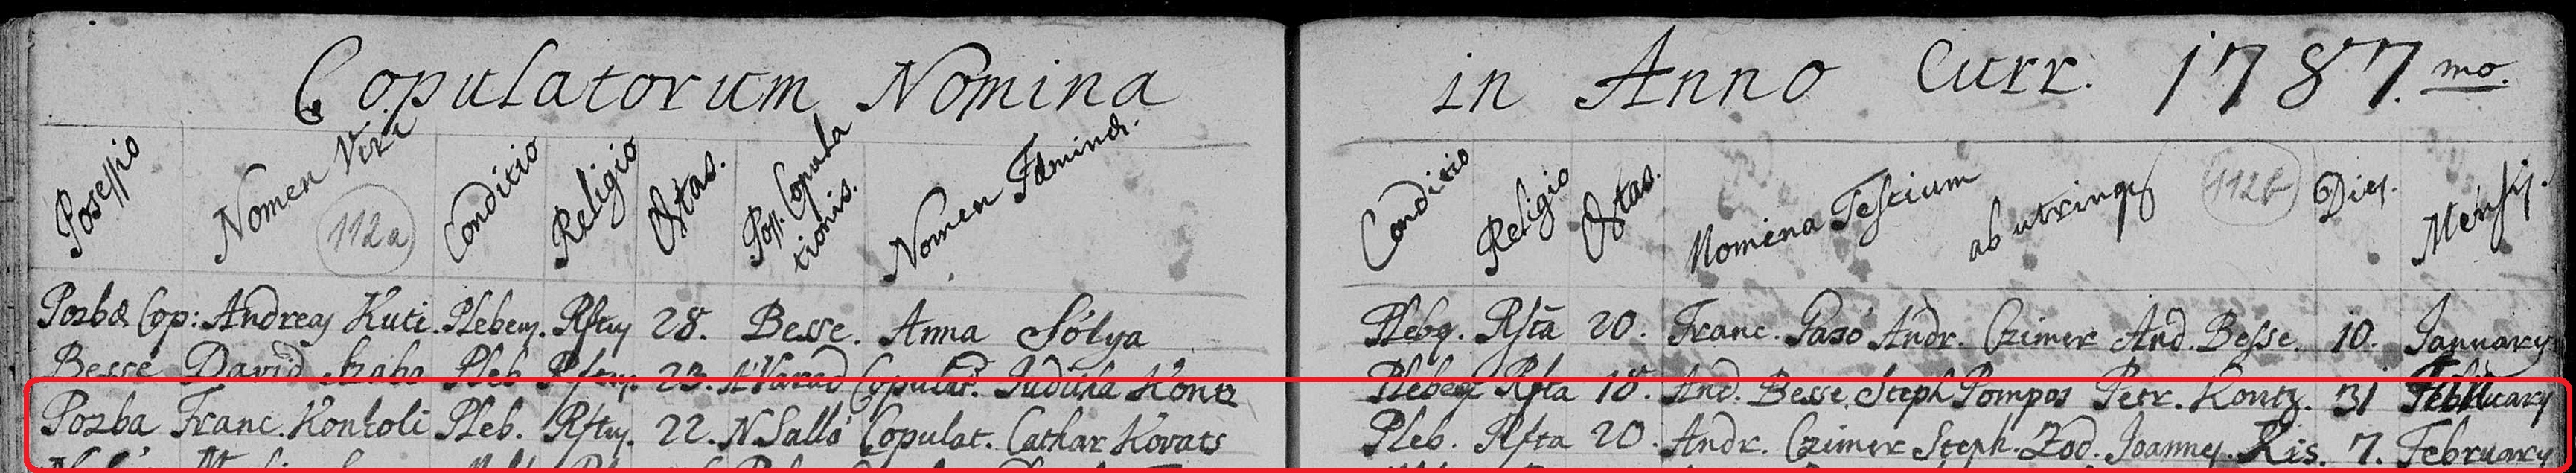 Copulatorum Nomina in Anno Curr. 1787.mo.
Possessio Nomen Viri 112a Conditio Religio Ætas. Poss. Copulationis. Nomen Fæminæ. Conditio Religio Ætas. Nomina Testium ab utrinq 112b Dies. Mensis.
Pozbæ Cop: Andreas Kuti. Plebeus. Rftus 28. Besse. Anna Sólya Plebea. Rfta 20. Franc. Pasó Andr. Czimer And. Besse. 10. January
Besse David Szabo Pleb Rftus. 23. N Várad Copulat. Juditha Kontz Plebea Rfta 18. And. Besse Steph Pompos Petr. Kontz. 31 February
Pozba Franc. Konkoli Pleb. Rftus. 22. N. Salló Copulat. Cathar Kovats Pleb. Rfta 20. Andr. Czimer Steph. Zod. Joannes. Kis. 7. February